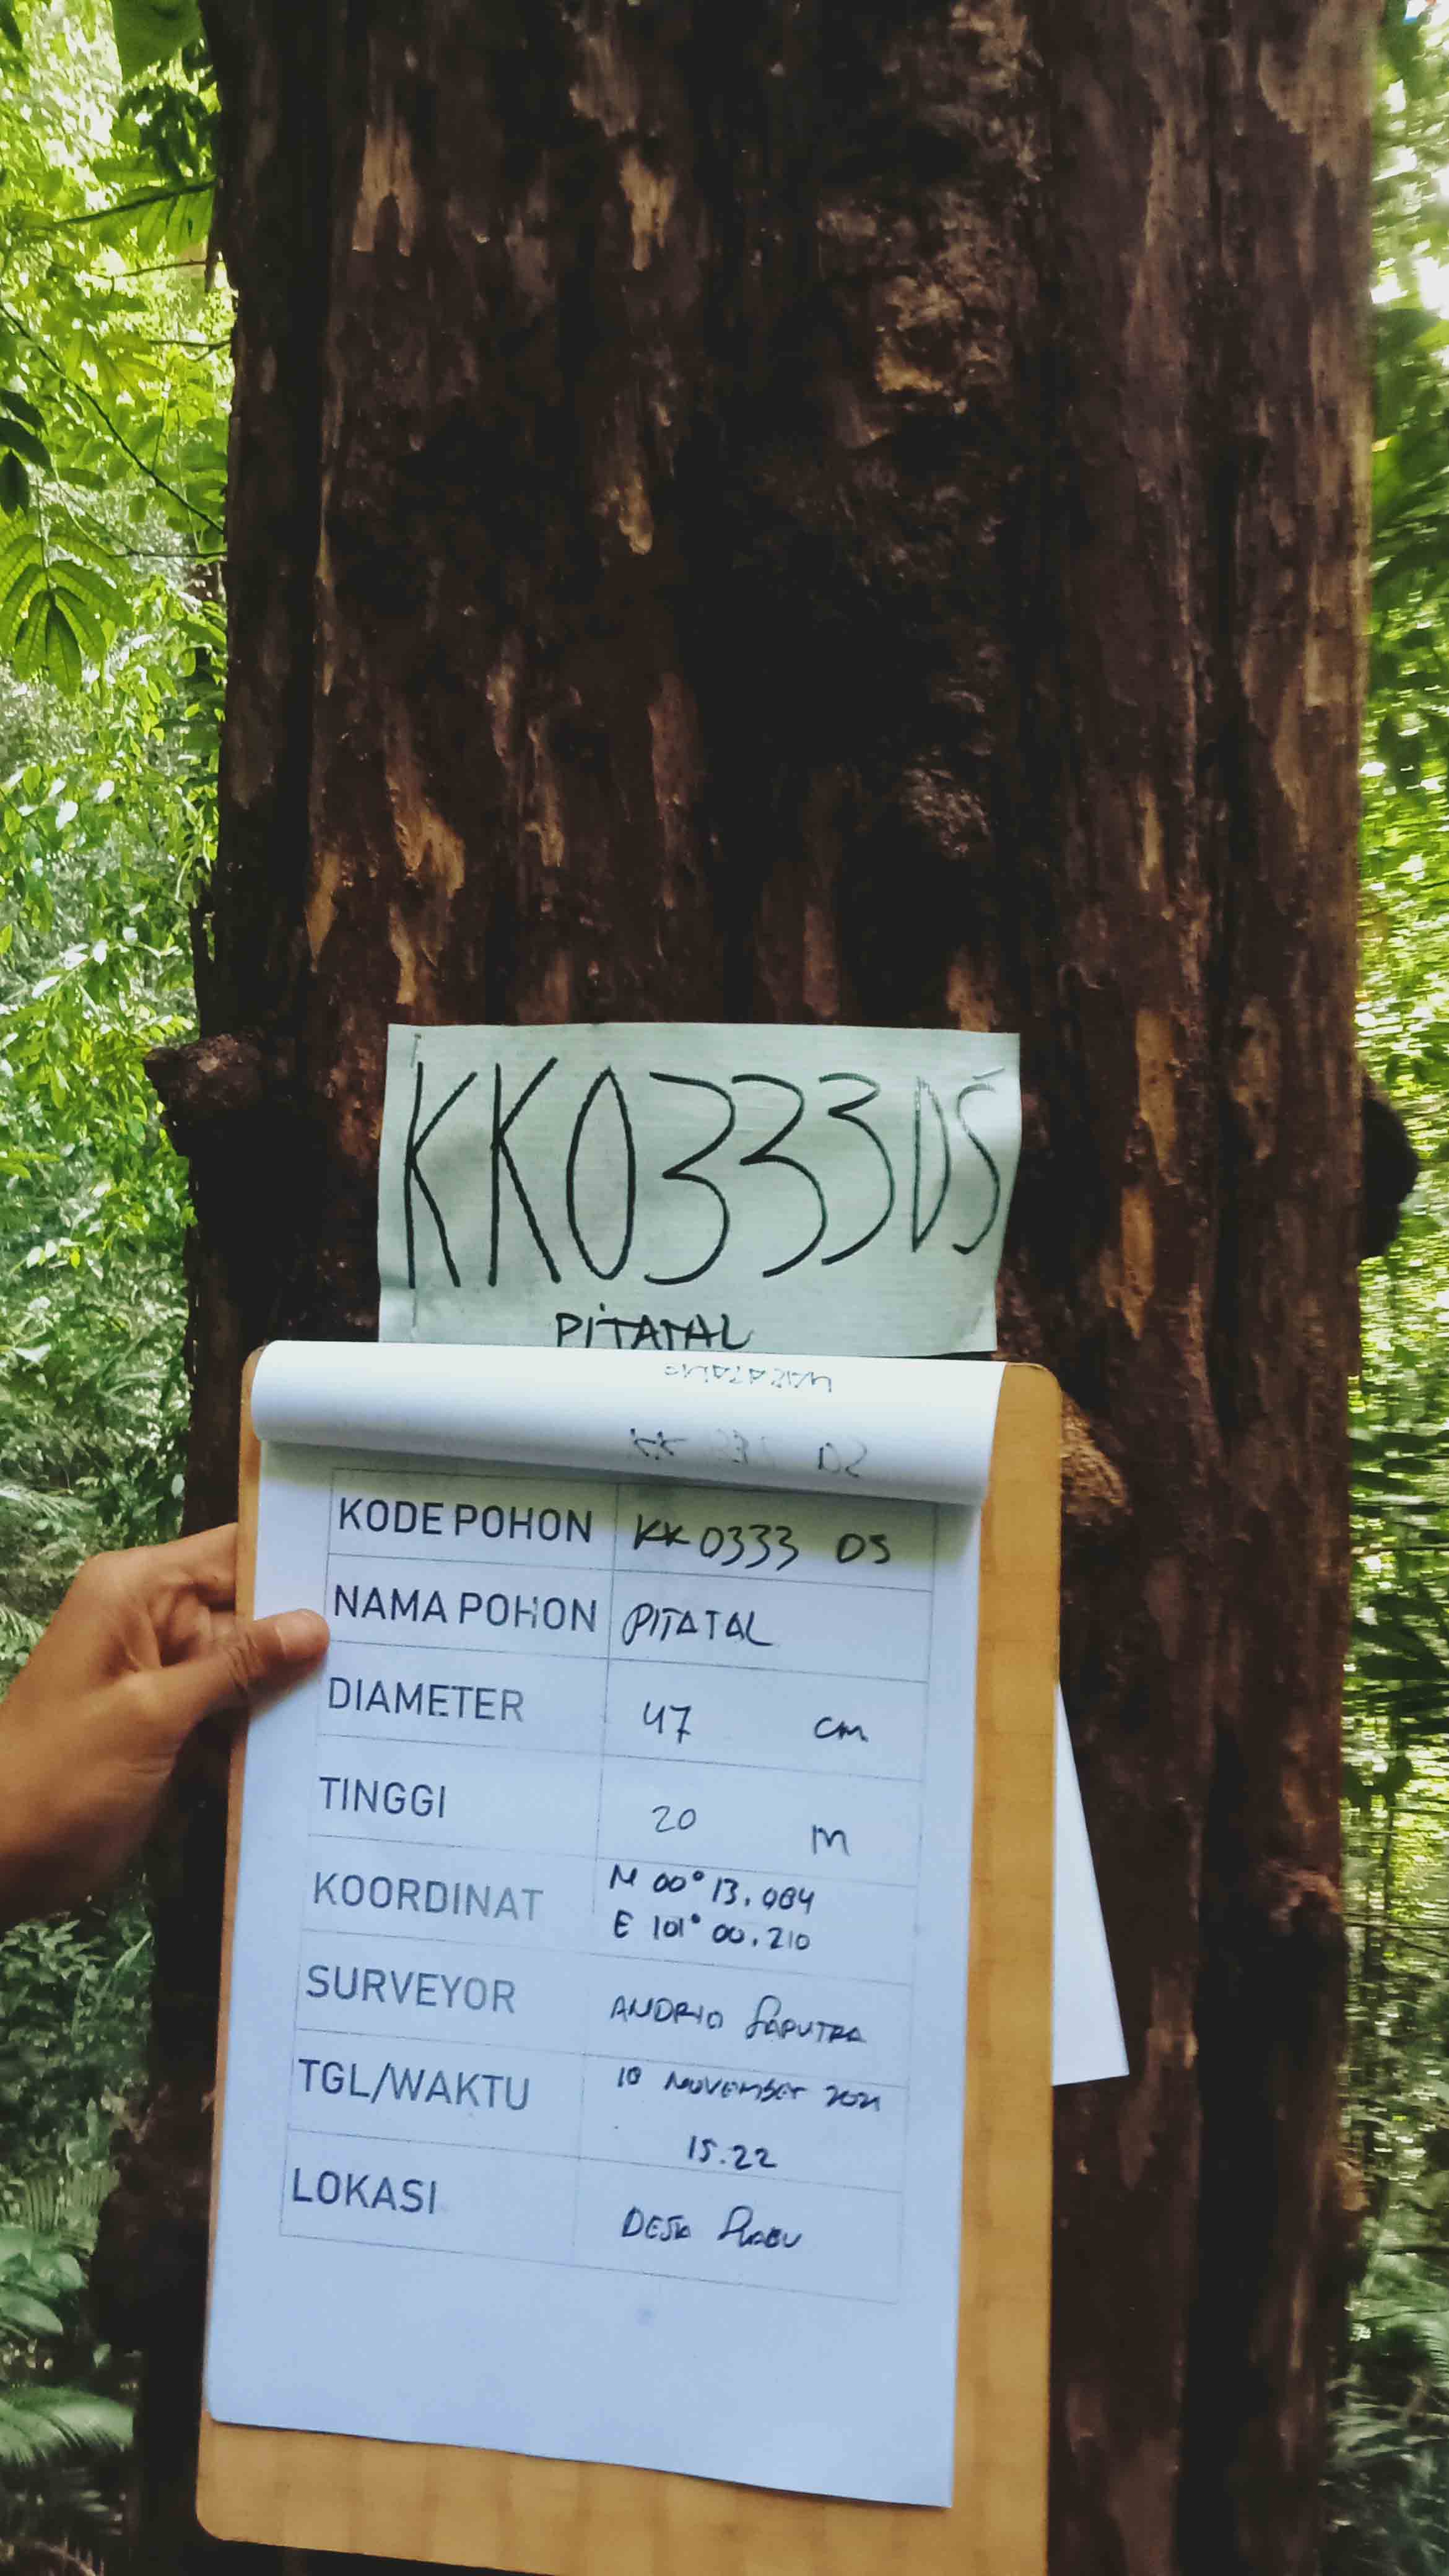 KK0333DS
PITATAL
KODE POHON KK0333 DS
NAMA POHON PITATAL
DIAMETER 47 cm
TINGGI 20 m
KOORDINAT N 00° 13.084
E 101° 00.210
SURVEYOR ANDRIO SAPUTRA
TGL/WAKTU 10 NOVEMBER 2021
15.22
LOKASI DESA